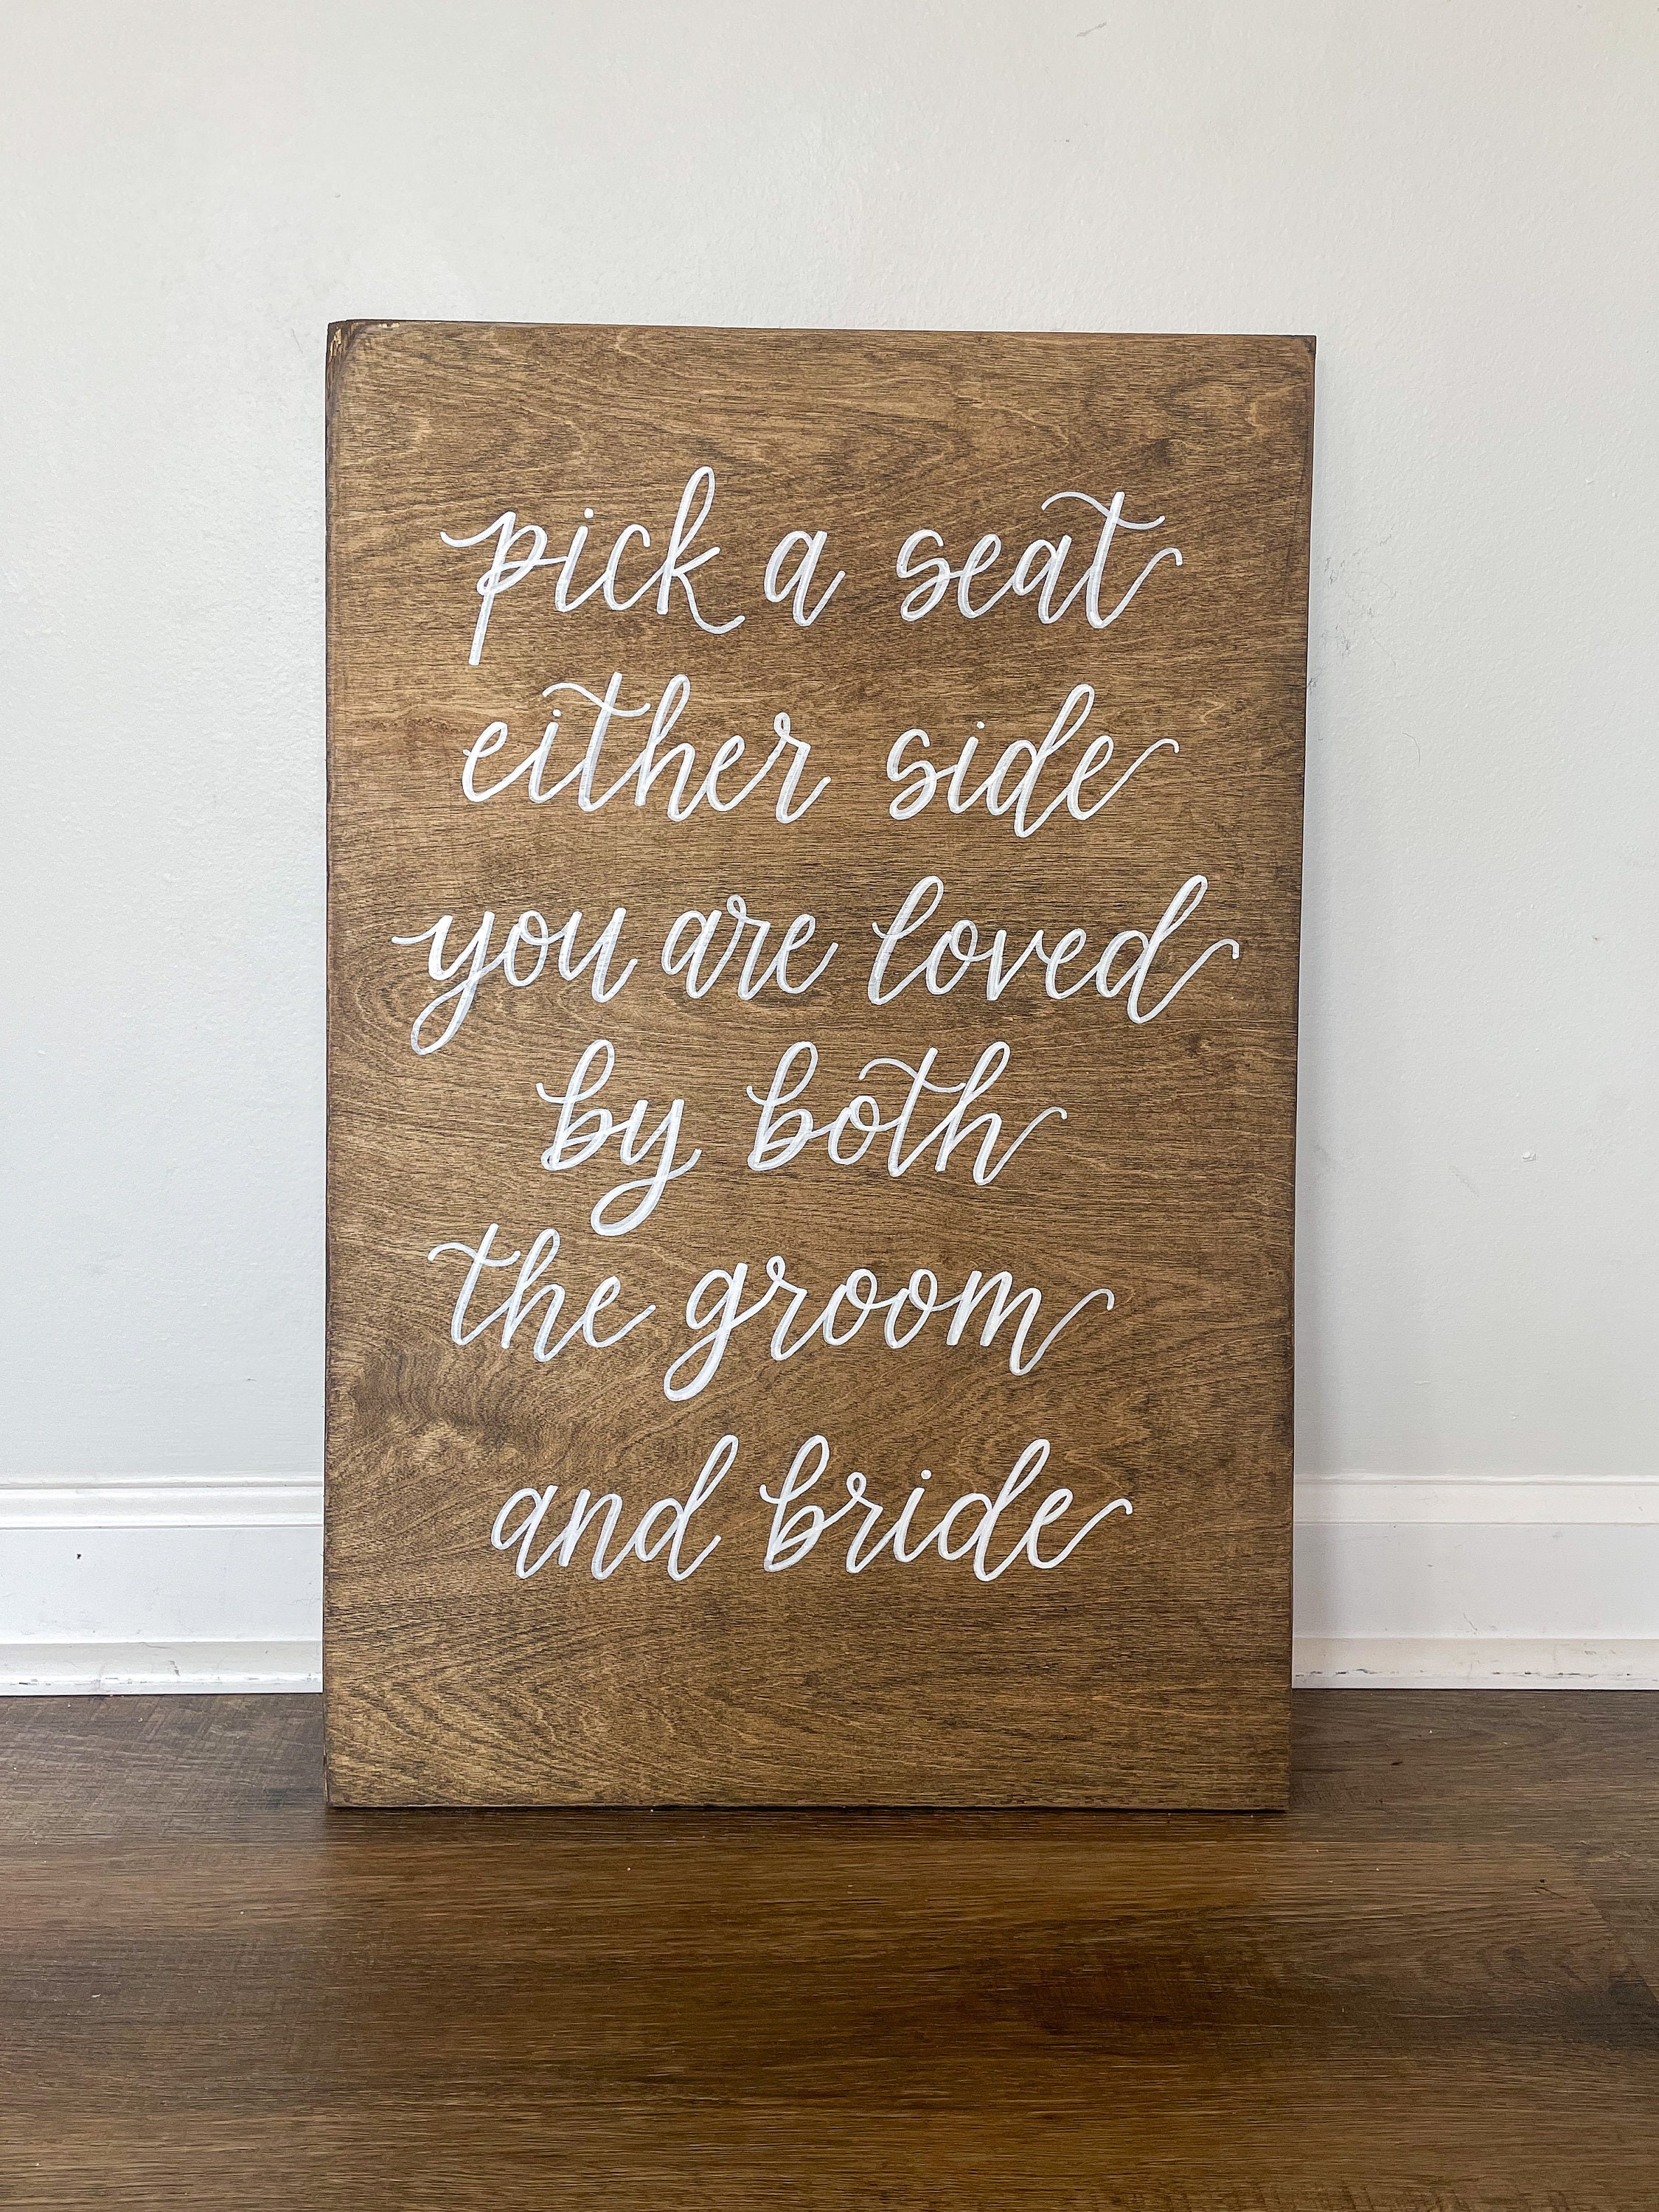 pick a seat
either side
you are loved
by both
the groom
and bride